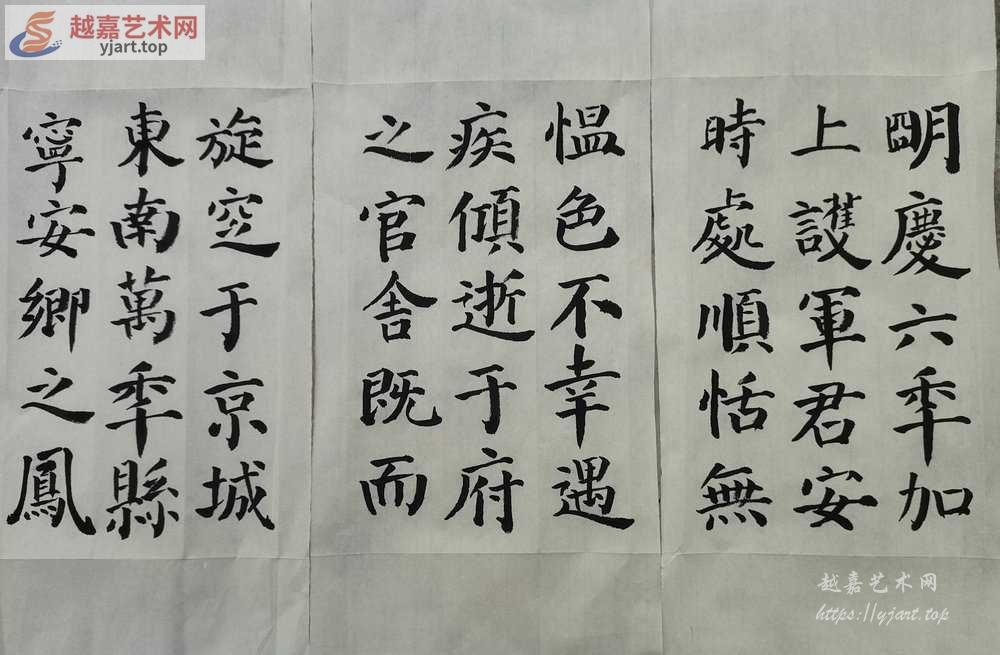 越嘉艺术网
yjart.top
明慶六年加
上護軍君安
時處順恬無
愠色不幸遇
疾傾逝于府
之官舍既而
旋窆于京城
東南萬年縣
寧安鄉之鳳
越嘉艺术网
https://yjart.top